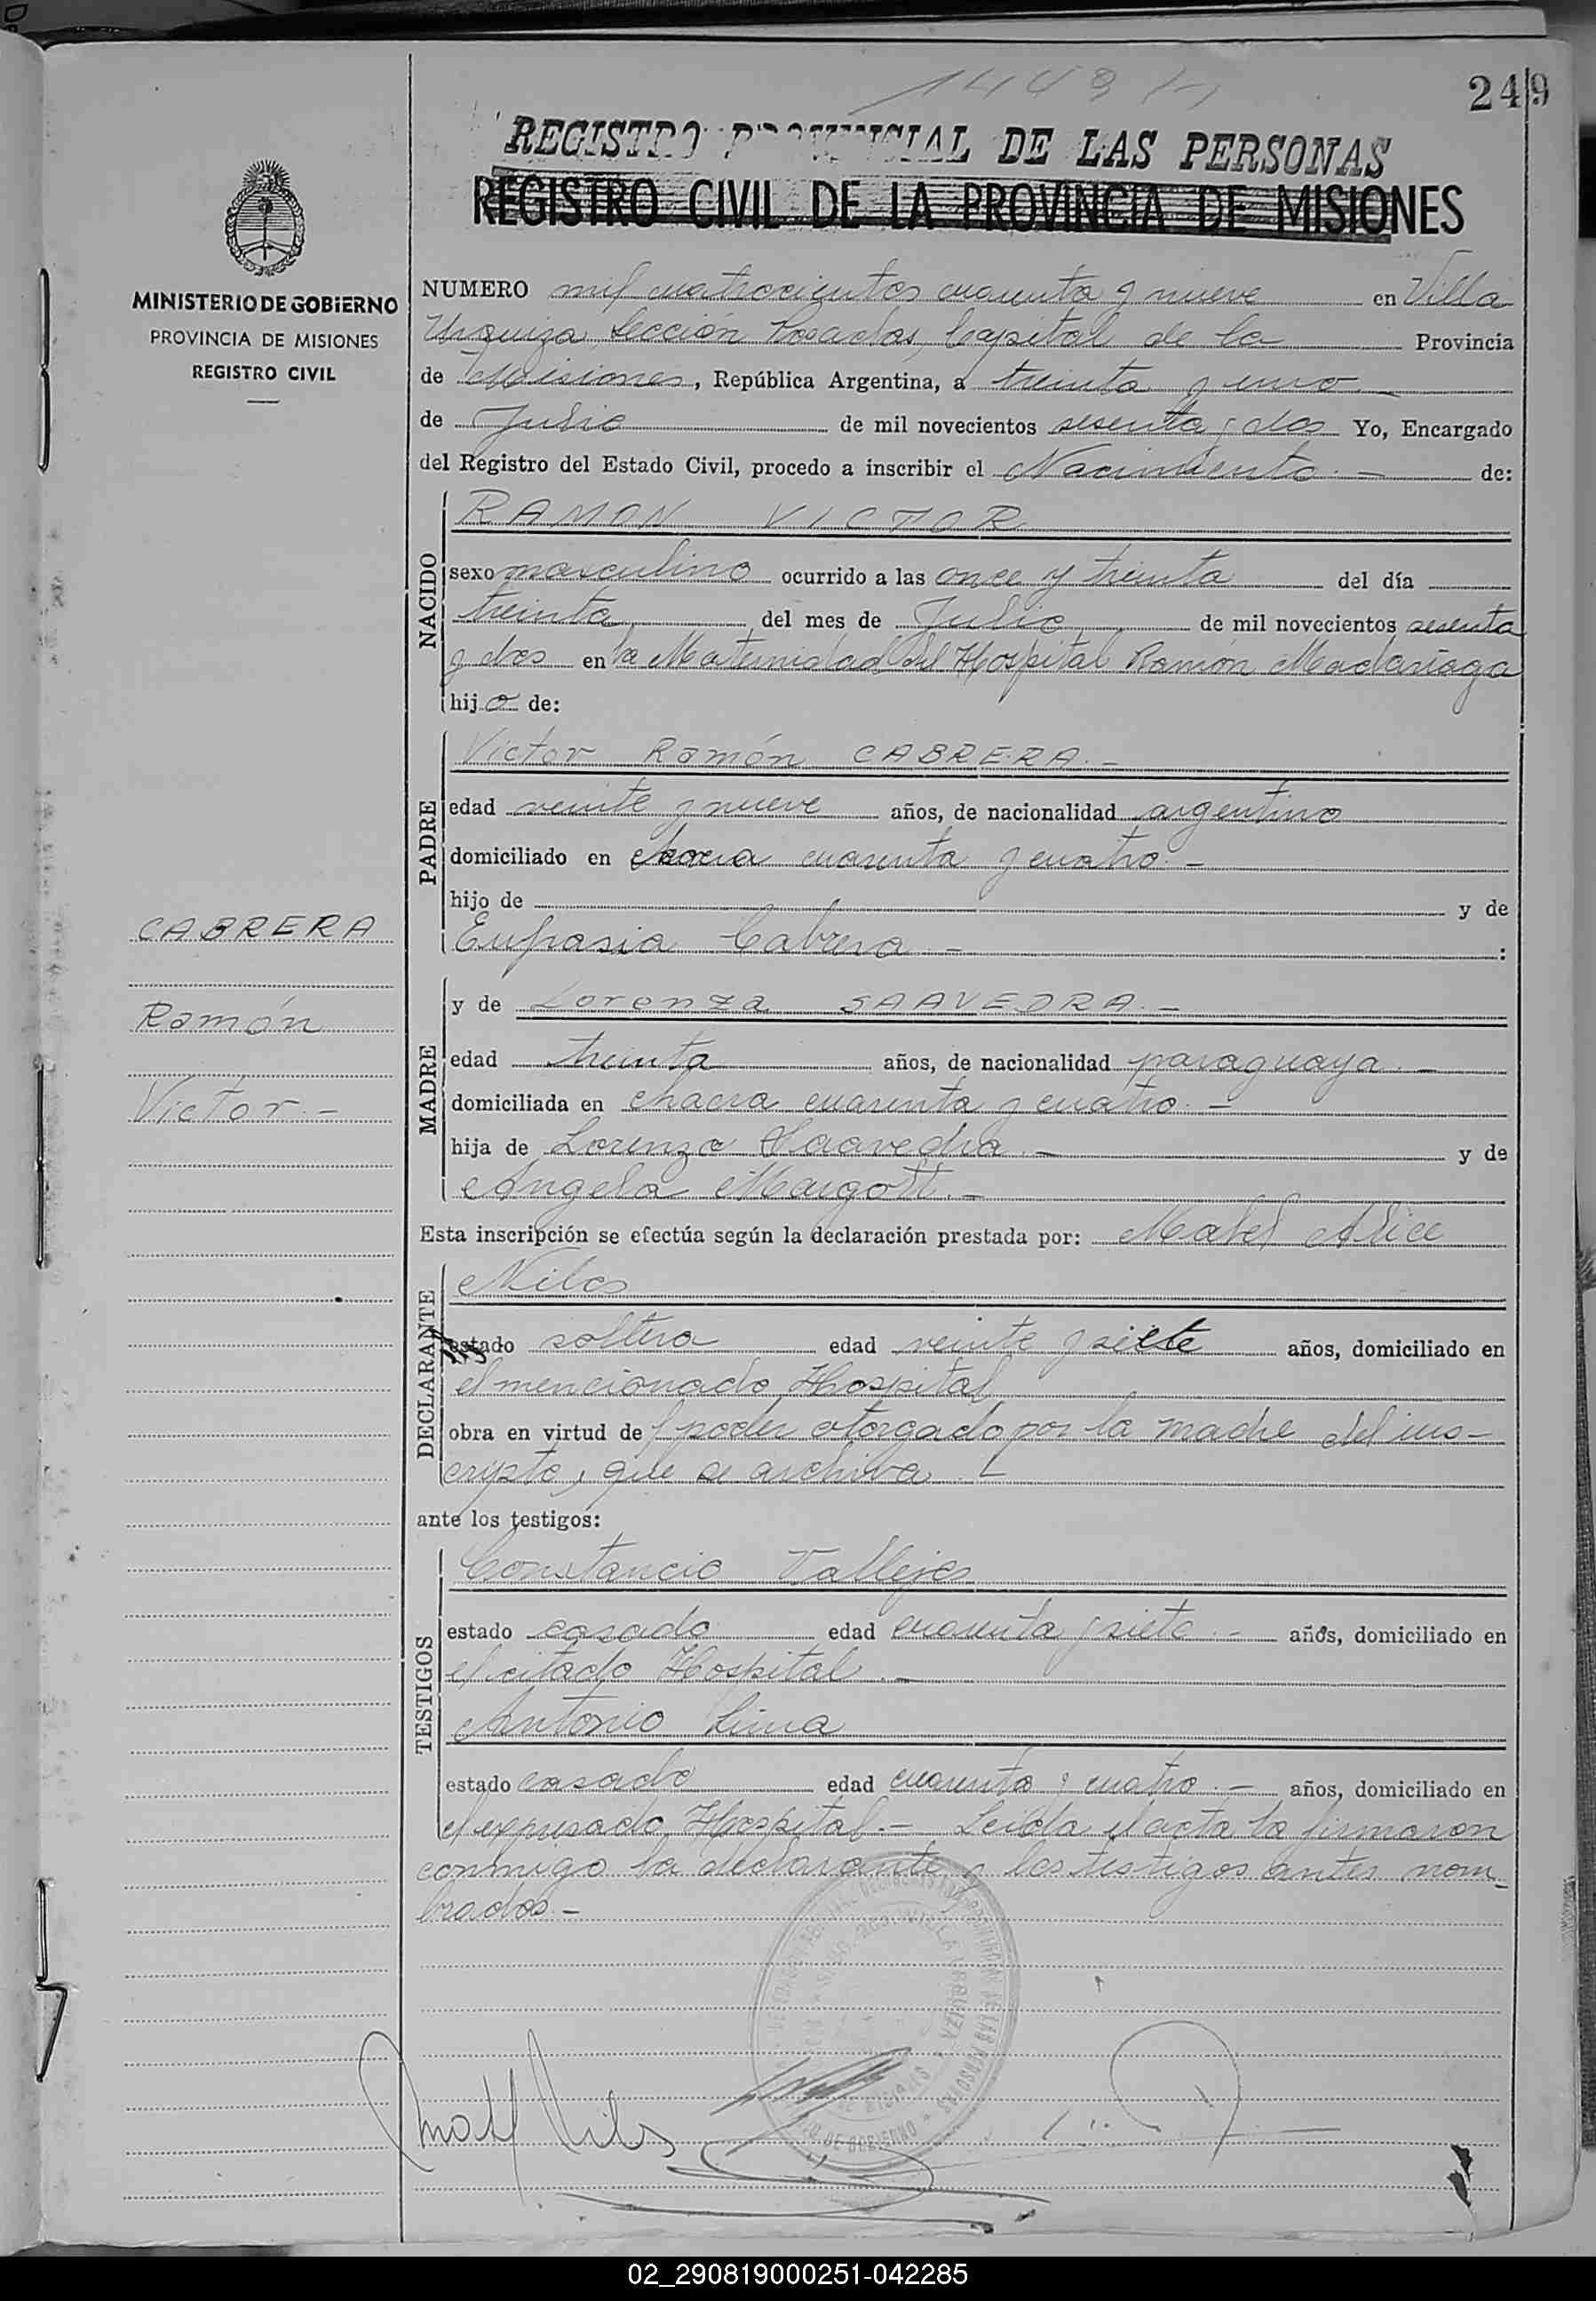 1449
249
REGISTRO PROVINCIAL DE LAS PERSONAS
REGISTRO CIVIL DE LA PROVINCIA DE MISIONES
MINISTERIO DE GOBIERNO
PROVINCIA DE MISIONES
REGISTRO CIVIL
NUMERO mil cuatrocientos cuarenta y nueve en Villa
Urquiza, Sección Posadas, Capital de la Provincia
de Misiones, República Argentina, a treinta y uno
de Julio de mil novecientos sesenta y dos Yo, Encargado
del Registro del Estado Civil, procedo a inscribir el Nacimiento.- de:
NACIDO
RAMON VICTOR
sexo masculino ocurrido a las once y treinta del día
treinta del mes de Julio de mil novecientos sesenta
y dos en la Maternidad del Hospital Ramón Madariaga
hijo de:
PADRE
Victor Ramón CABRERA.-
edad veinte y nueve años, de nacionalidad argentino
domiciliado en chacra cuarenta y cuatro.-
hijo de y de
Eufrasia Cabrera.- :
CABRERA
Ramón
Victor.-
MADRE
y de Lorenza SAAVEDRA.-
edad treinta años, de nacionalidad paraguaya.-
domiciliada en chacra cuarenta y cuatro.-
hija de Lorenzo Saavedra.- y de
Angela Margott.-
Esta inscripción se efectúa según la declaración prestada por: Mabel Alice
DECLARANTE
Nilos
estado soltera edad veinte y siete años, domiciliado en
el mencionado Hospital
obra en virtud de poder otorgado por la madre del ins-
crypto, que se archiva.-
ante los testigos:
TESTIGOS
Constancio Vallejos
estado casado edad cuarenta y siete.- años, domiciliado en
el citado Hospital.-
Antonio Lima
estado casado edad cuarenta y cuatro.- años, domiciliado en
el expresado Hospital.- Leída el acta la firmaron
conmigo la declarante y los testigos antes nom-
brados.-
02_290819000251-042285